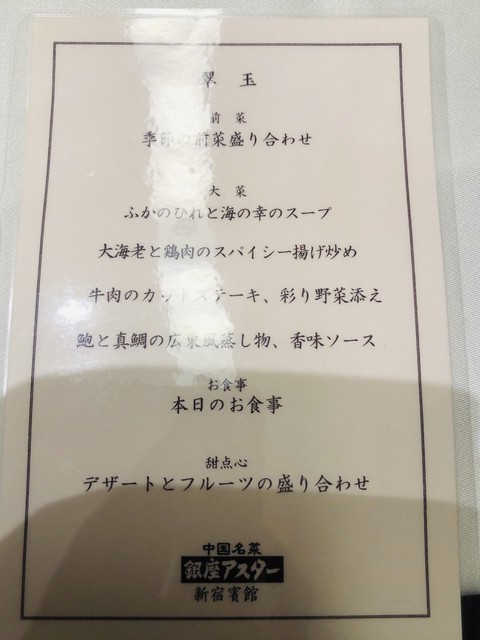 翠玉
前菜
季節の前菜盛り合わせ
大菜
ふかのひれと海の幸のスープ
大海老と鶏肉のスパイシー揚げ炒め
牛肉のカットステーキ、彩り野菜添え
鮑と真鯛の広東風蒸し物、香味ソース
お食事
本日のお食事
甜点心
デザートとフルーツの盛り合わせ
中国名菜
銀座アスター
新宿賓館